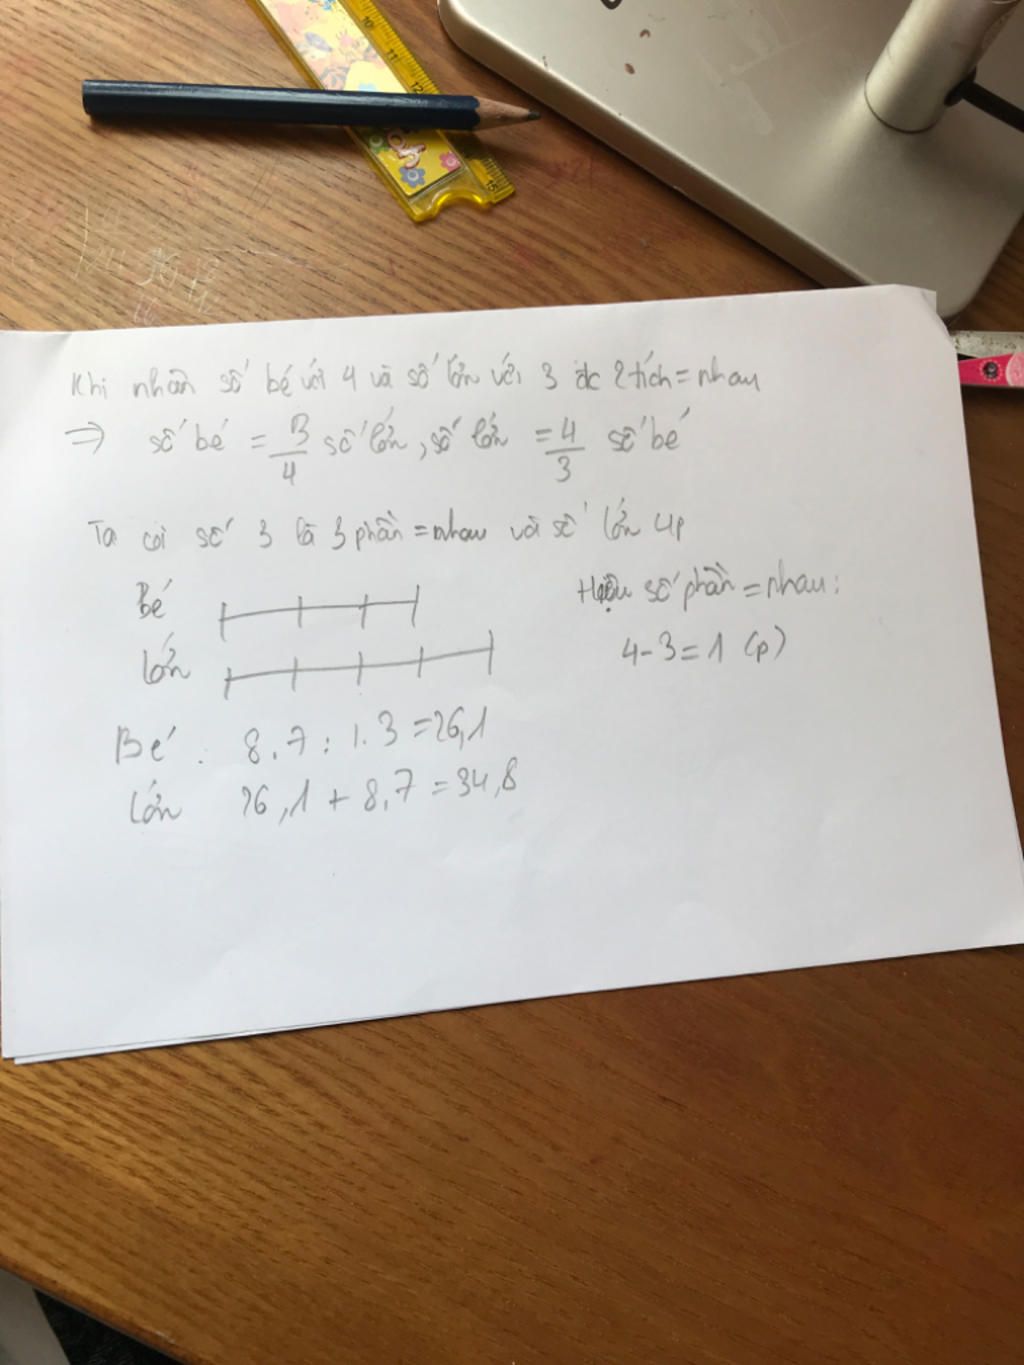 Khi nhân số bé với 4 và số lớn với 3 đc 2 tích = nhau
=> số bé = 3/4 số lớn, số lớn = 4/3 số bé
Ta coi số 3 là 3 phần = nhau và số lớn 4p
Bé
Hiệu số phần = nhau:
lớn
4-3=1 (p)
Bé : 8,7 : 1 . 3 = 26,1
lớn 26,1 + 8,7 = 34,8
10
11
12
15